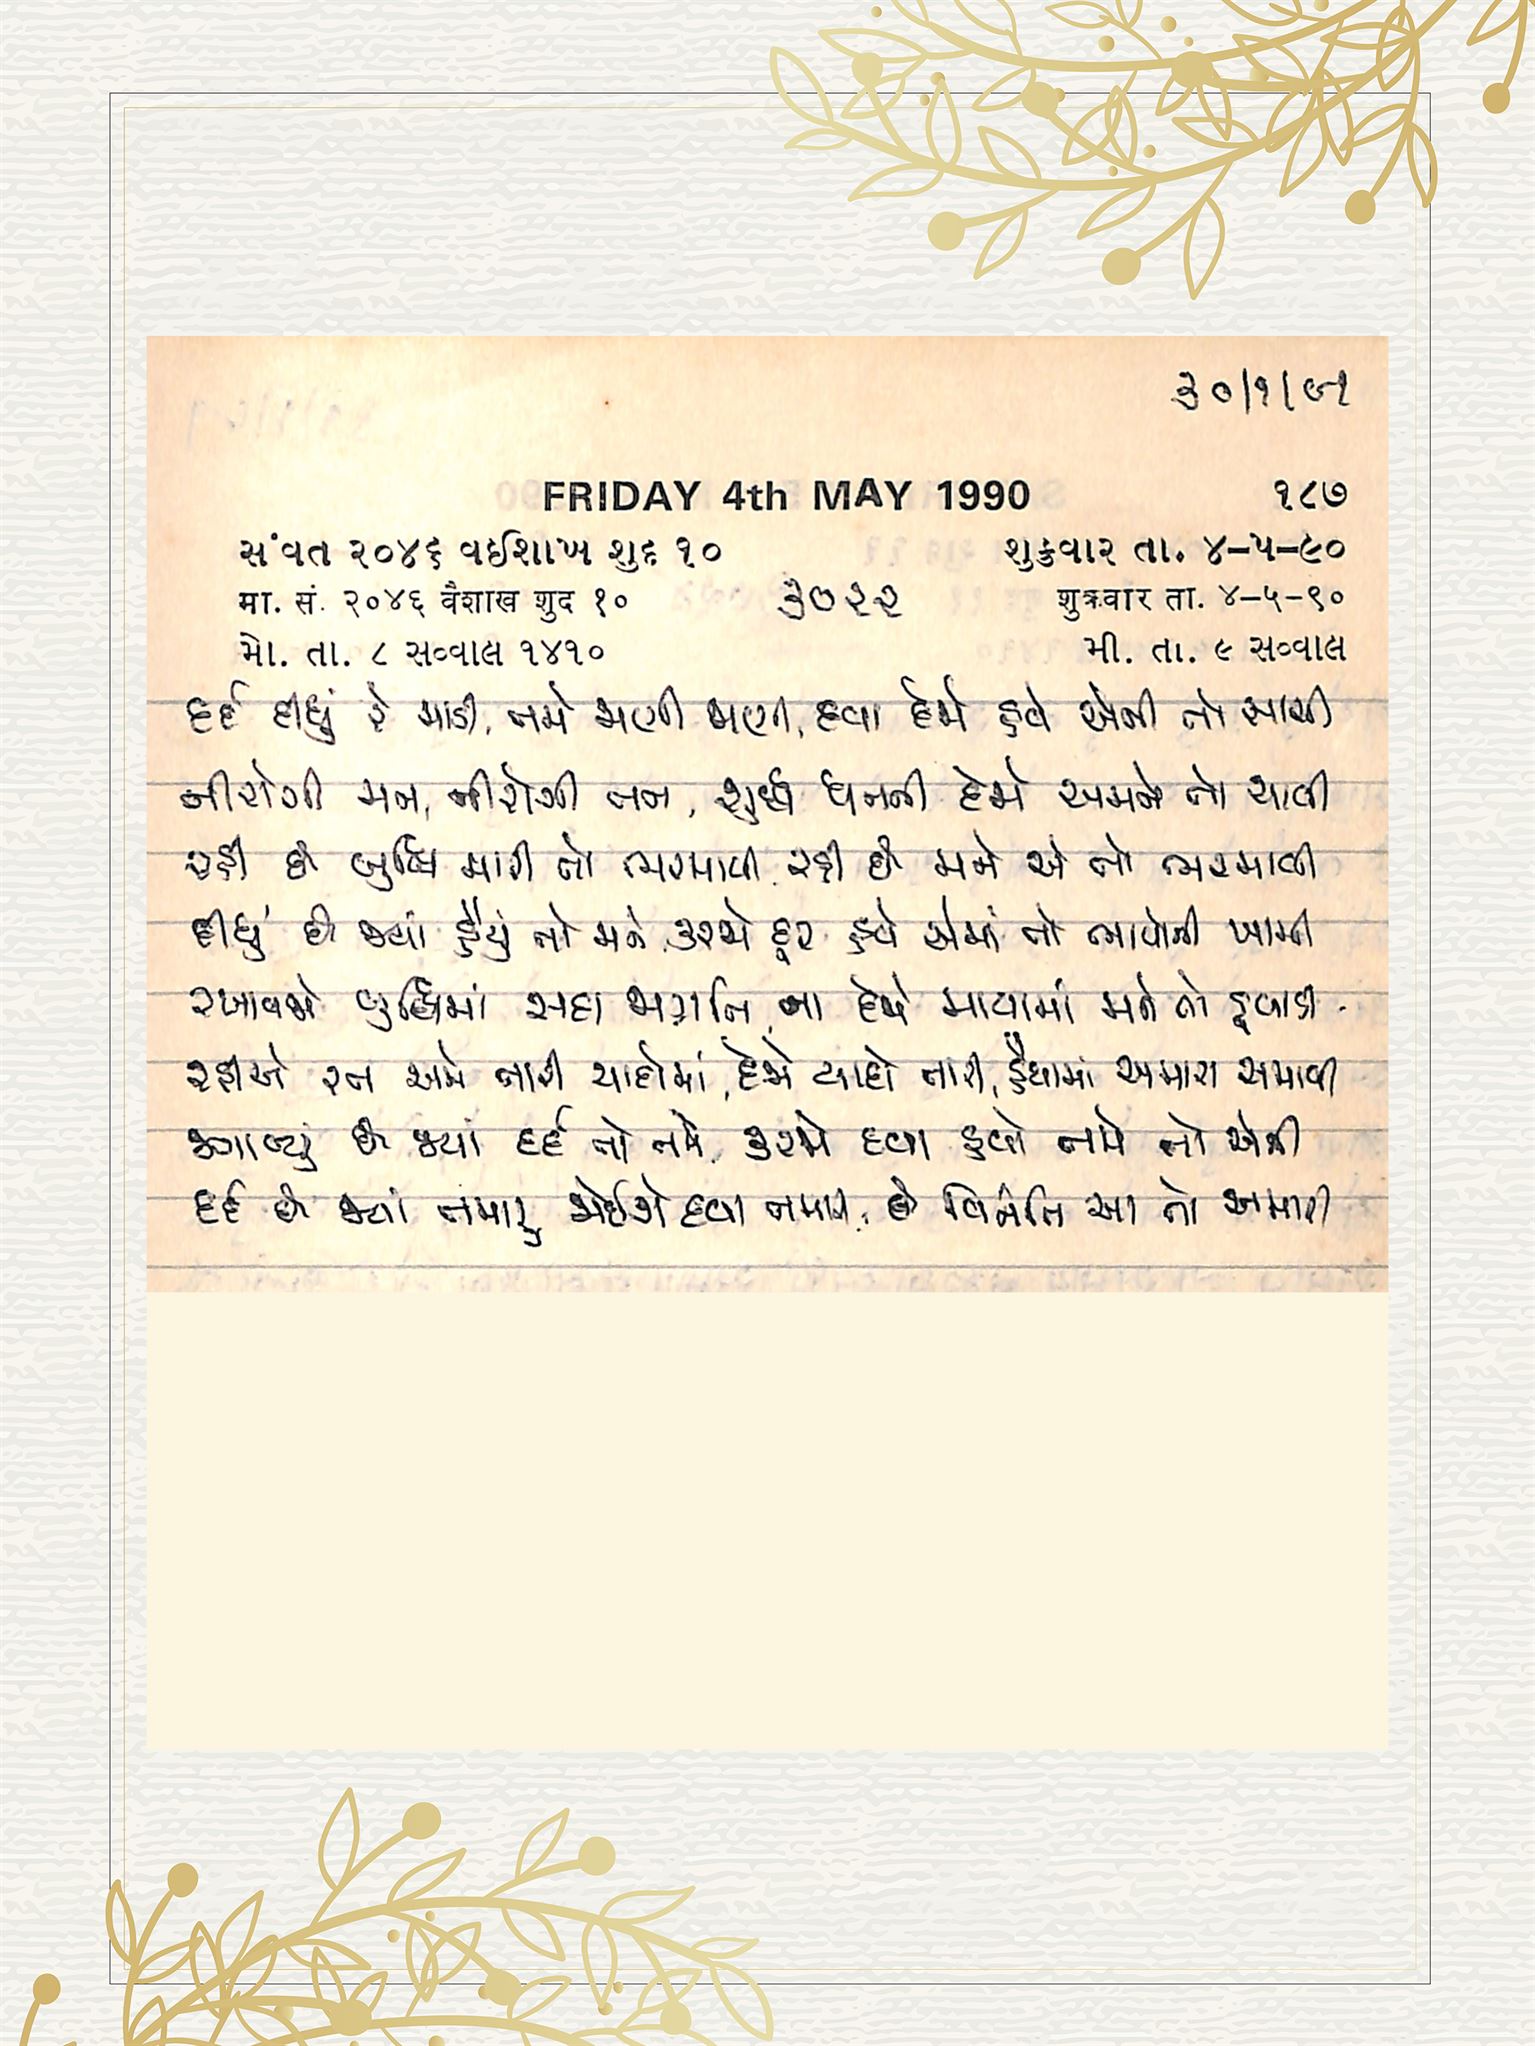 ૩૦/૧/૯૧
FRIDAY 4th MAY 1990 ૧૮૭
સંવત ૨૦૪૬ વઈશાખ શુદ ૧૦ શુક્રવાર તા. ૪-૫-૯૦
मा. सं. २०४६ वैशाख शुद १० ૩૦૨૨ शुक्रवार ता. ४-५-९०
મો. તા. ૮ સવ્વાલ ૧૪૧૦ મી. તા. ૯ સવ્વાલ
દર્દ દીધું રે માડી, તમે જાણી જાણી, દવા દેજે હવે એની તો સાચી
નીરોગી મન, નીરોગી તન, શુદ્ધ ધનની દેજે અમને તો ચાવી
રહી છે બુદ્ધિ મારી તો ભરમાવી, રહી છે મને એ તો ભરમાવી
દીધું છે જ્યાં હૈયું તો મને, કરજે દૂર હવે એમાં તો ભાવોની ખામી
રખાવજે બુદ્ધિમાં સદા જાગૃતિ, ના દેજે માયામાં મને તો ડુબાડી
રહીએ રત અમે તારી યાદોમાં, દેજે યાદો તારી, હૈયામાં અમારા સમાવી
જગાવ્યું છે જ્યાં દર્દ તો તમે, કરજે દવા હવે તમે તો એની
દર્દ છે જ્યાં તમારું જોઈશે દવા તમારી, છે વિનંતિ આ તો અમારી